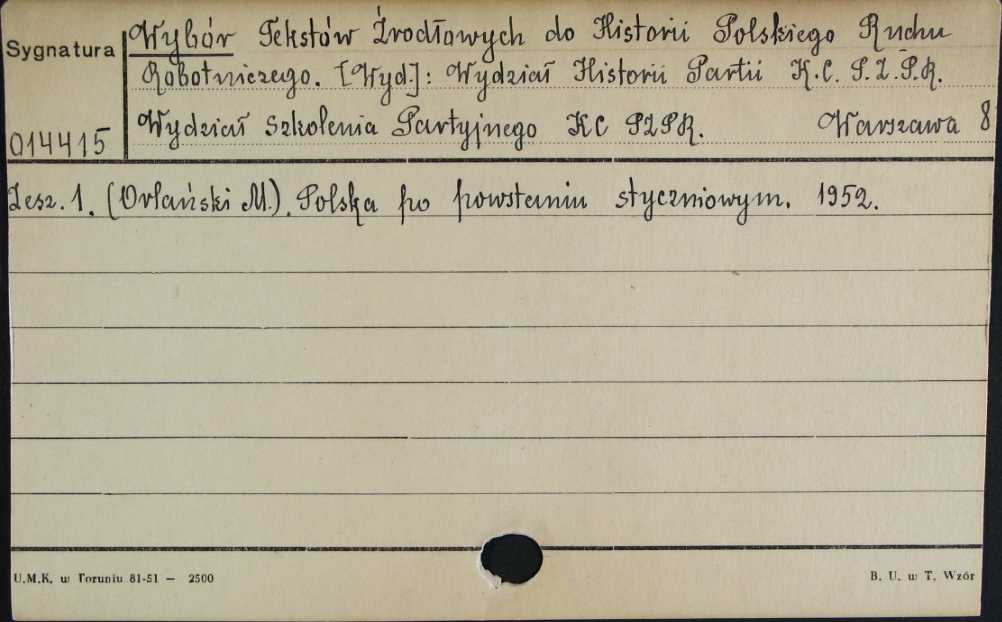 Sygnatura
014415
Wybór Tekstów Źrodłowych do Historii Polskiego Ruchu
Robotniczego. [Wyd.]: Wydział Historii Partii K.C. P.Z.P.R.
Wydział Szkolenia Partyjnego KC PZPR. Warszawa 8
Zesz. 1. (Orłański M.). Polska po powstaniu styczniowym. 1952.
U.M.K. w Toruniu 81-51 — 2500
B. U. w T. Wzór